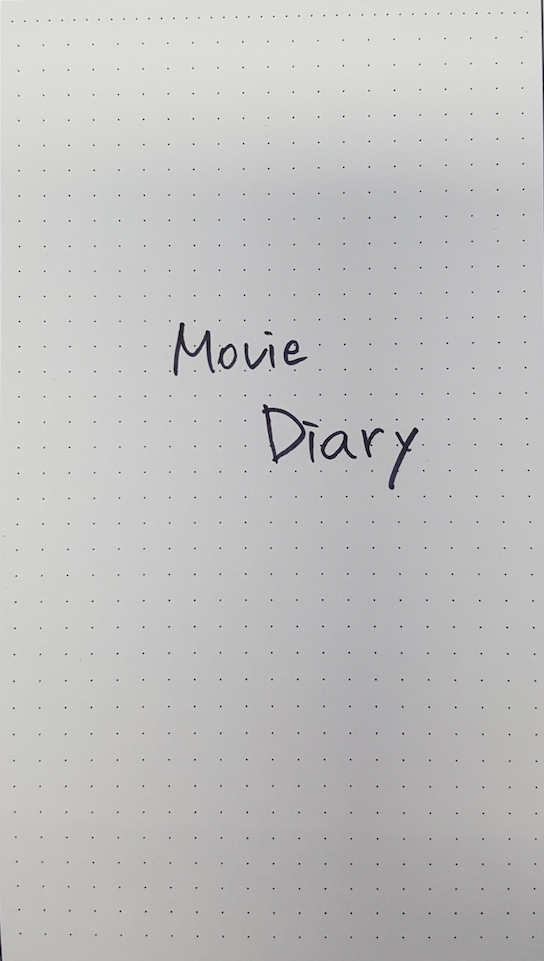 Movie
Diary